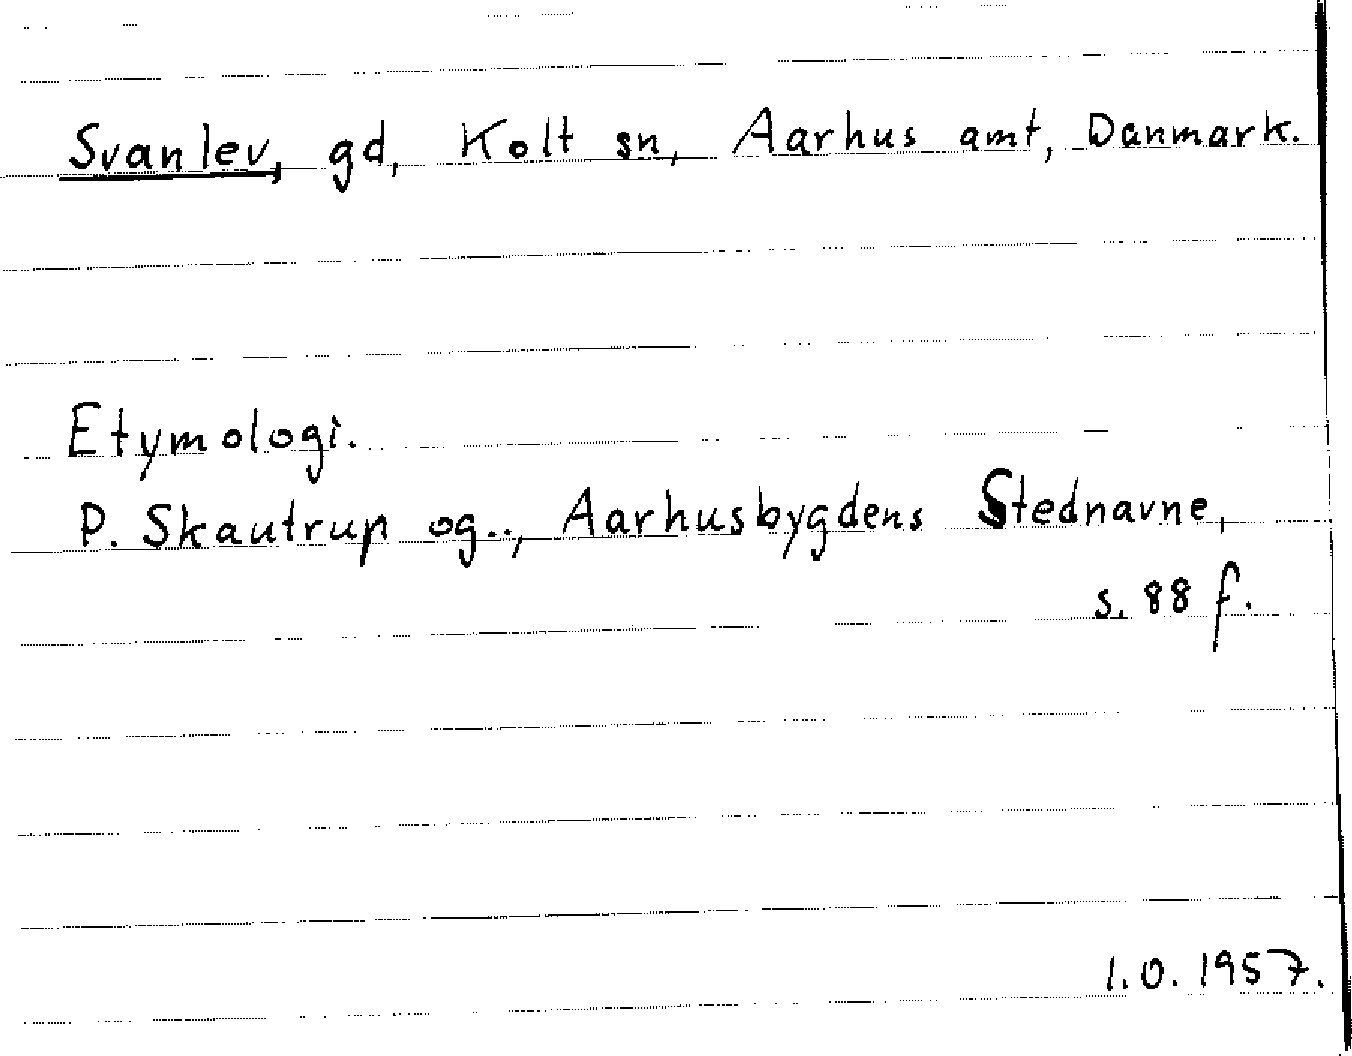 Svanlev, gd, Kolt sn, Aarhus amt, Danmark.
Etymologi.
P. Skautrup og.., Aarhusbygdens Stednavne,
s. 88 f.
I.O. 1957.